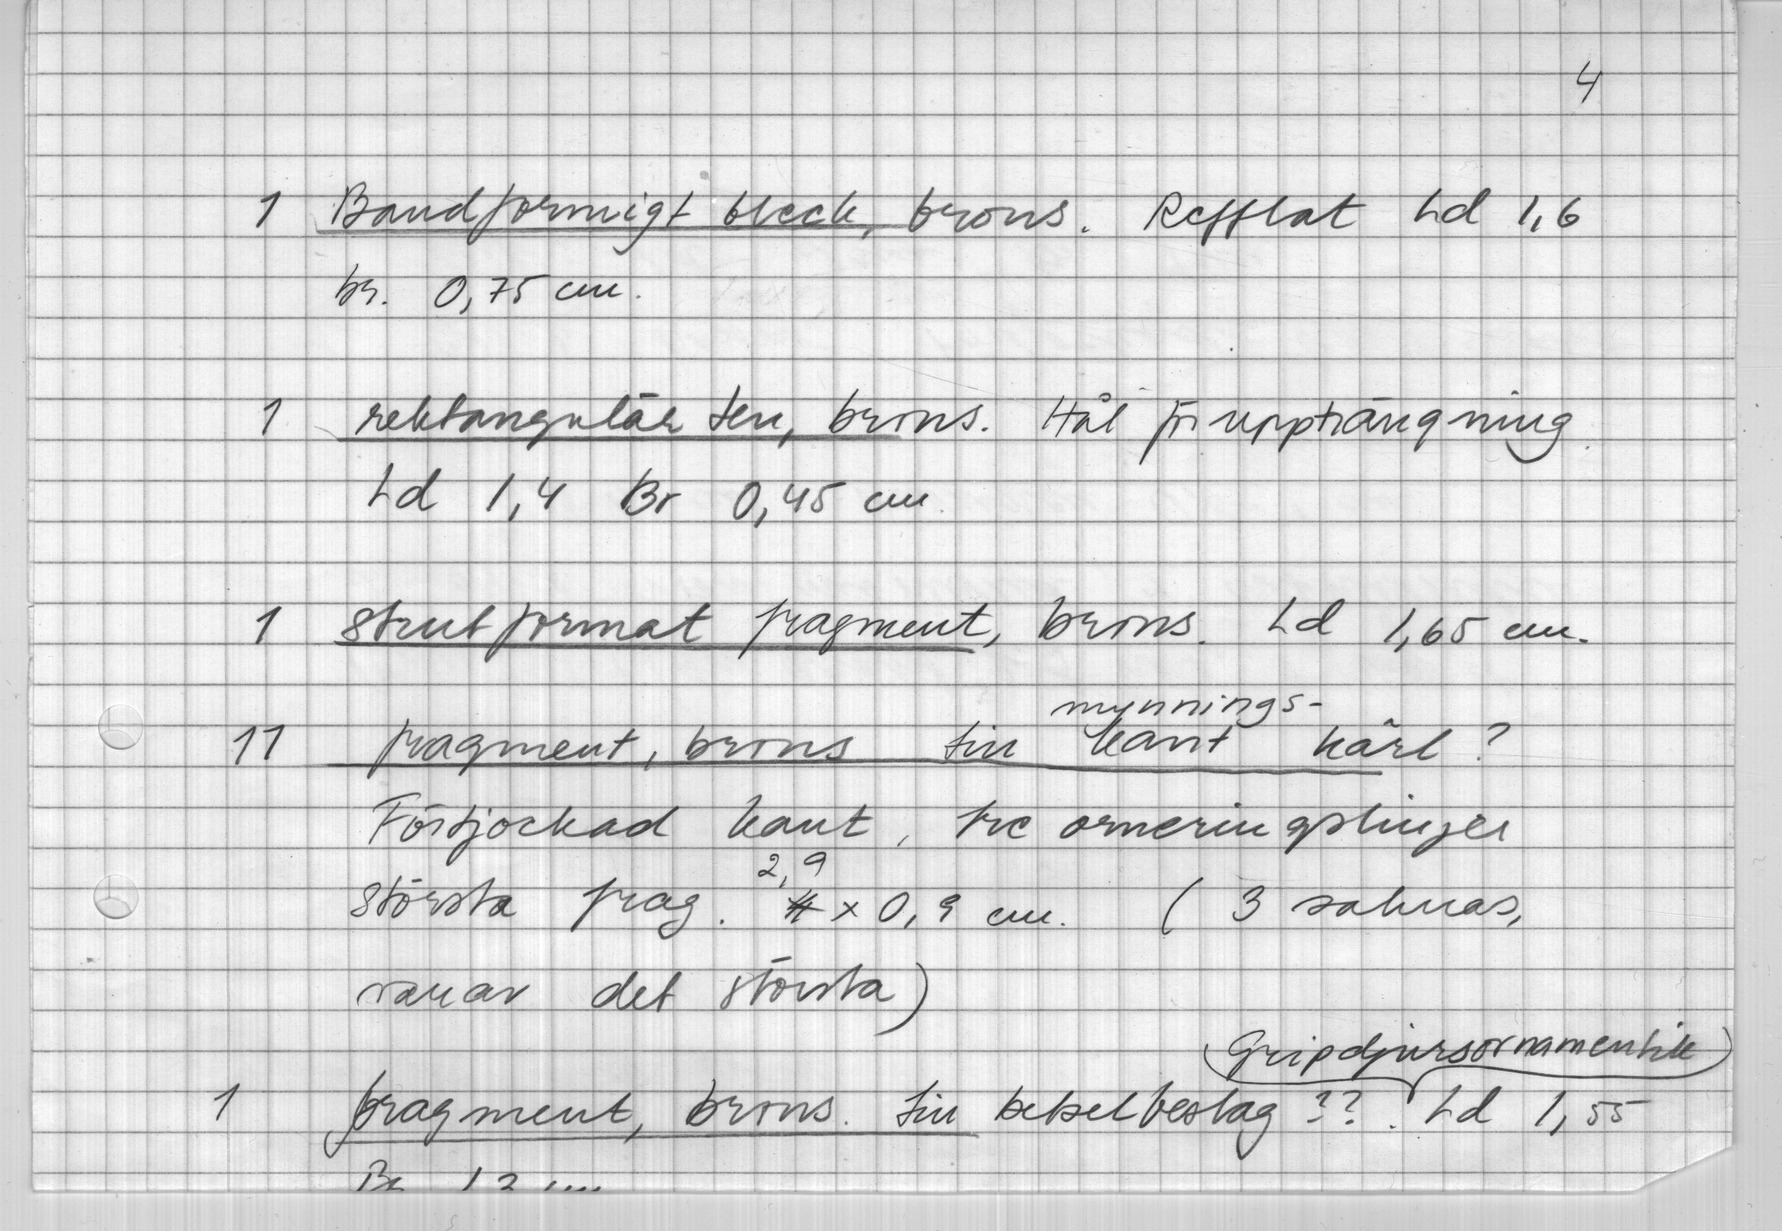 4
1 Bandformigt bleck, brons. Refflat Ld 1,6
br. 0,75 cm.
1 rektangulär ten, brons. Hål för upphängning
Ld 1,4 Br 0,45 cm.
1 strutformat fragment, brons. Ld 1,65 cm.
mynnings-
11 fragment, brons till kant kärl ?
Förtjockad kant, tre orneringslinjer
2,9
största frag. x 0,9 cm. ( 3 saknas,
det största)
(Gripdjursornamentik)
1 fragment, brons. till betselbeslag ??. Ld 1,55
Br 1,2 cm